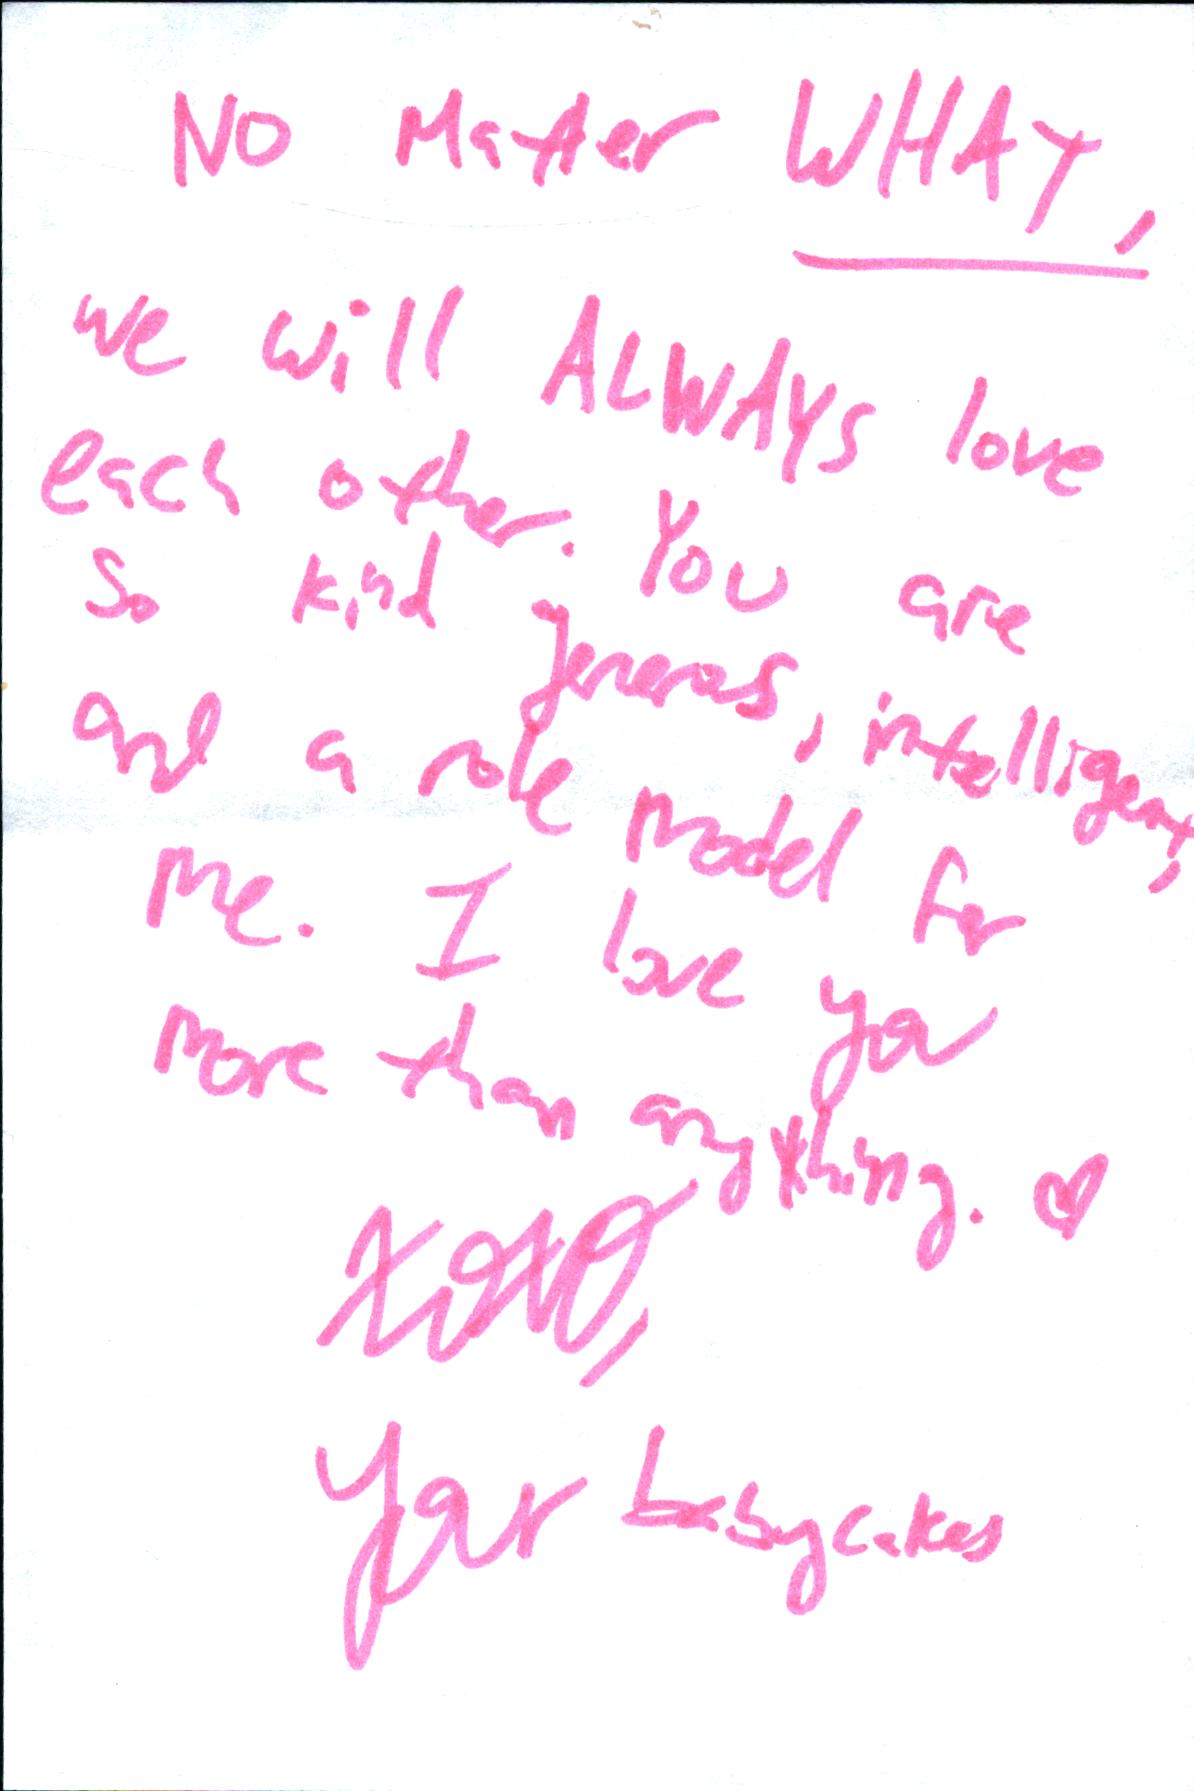 No Matter WHAT,
we will ALWAYS love
each other. You are
so kind generos, intelligent,
and a role model for
me. I love you
more than anything. ♡
XOXO,
Your babycakes